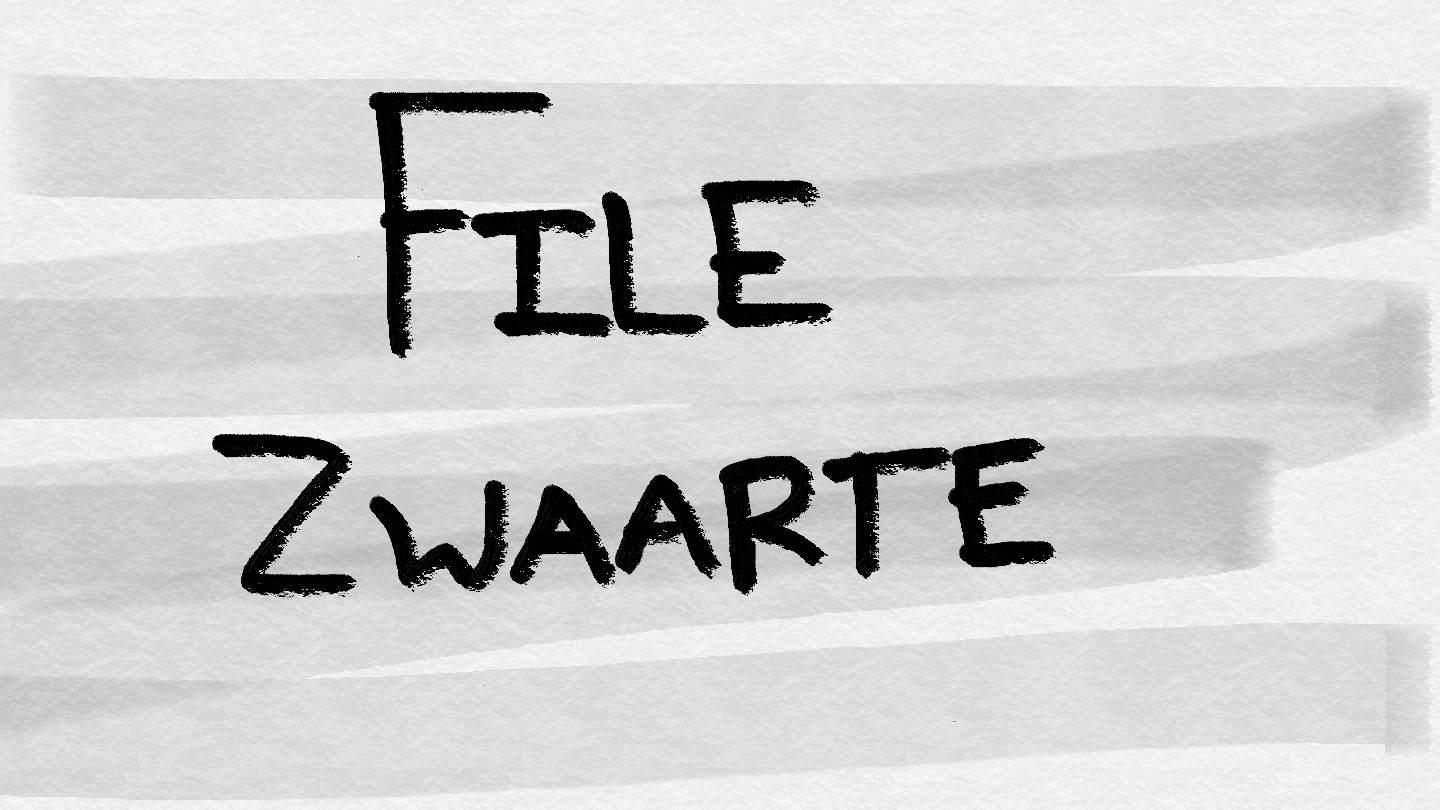 FILE
ZWAARTE